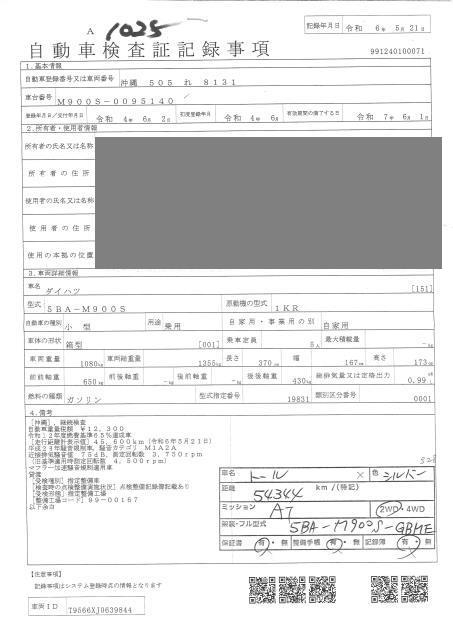 A 1025
記録年月日 令和 6年 5月 21日
自動車検査証記録事項
991240100071
1.基本情報
自動車登録番号又は車両番号 沖縄 505 れ 8131
車台番号 M900S-0095140
登録年月日/交付年月日 令和 4年 6月 2日 初度登録年月 令和 4年 6月 有効期間の満了する日 令和 7年 6月 1日
2.所有者・使用者情報
所有者の氏名又は名称
所有者の住所
使用者の氏名又は名称
使用者の住所
使用の本拠の位置
3.車両詳細情報
車名 ダイハツ [151]
型式 5BA-M900S 原動機の型式 1KR
自動車の種別 小型 用途 乗用 自家用・事業用の別 自家用
車体の形状 箱型 [001] 乗車定員 5人 最大積載量 -kg
車両重量 1080kg 車両総重量 1355kg 長さ 370cm 幅 167cm 高さ 173cm
前前軸重 650kg 前後軸重 -kg 後前軸重 -kg 後後軸重 430kg 総排気量又は定格出力 0.99L
燃料の種類 ガソリン 型式指定番号 19831 類別区分番号 0001
4.備考
[沖縄],継続検査
自動車重量税額 ¥12,300
令和12年度燃費基準65%達成車
[走行距離計表示値]45,600km(令和6年5月21日)
平成28年騒音規制車,騒音カテゴリ M1A2A
近接排気騒音値 75dB,測定回転数 3,750rpm
(旧基準適用時測定回転数 4,500rpm)
マフラー加速騒音規制適用車
[受検種別]指定整備車
[検査時の点検整備実施状況]点検整備記録簿記載あり
[受検形態]指定整備工場
[整備工場コード]99-00157
以下余白
車名 トール 色 シルバー
距離 54344 km/(特記)
ミッション A7 2WD・4WD
架装・フル型式 5BA-M900S-GBME
保証書 有・無 整備手帳 有・無 記録簿 有・無
【注意事項】
記録事項はシステム登録時点の情報となります
車両ID T9566XJ0639844